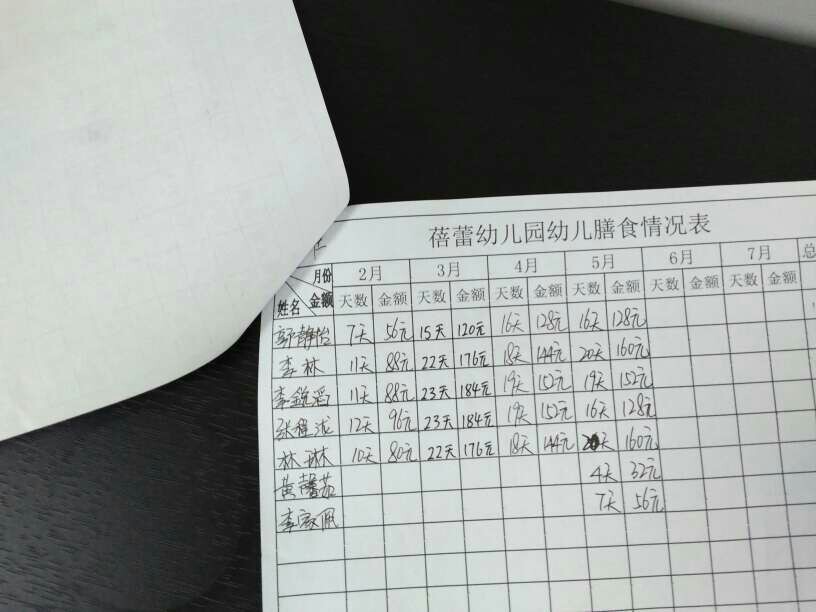 蓓蕾幼儿园幼儿膳食情况表
月份 2月 3月 4月 5月 6月 7月 总
姓名 金额 天数 金额 天数 金额 天数 金额 天数 金额 天数 金额 天数 金额
静怡 7天 56元 15天 120元 16天 128元 16天 128元
李林 11天 88元 22天 176元 18天 144元 20天 160元
李 11天 88元 23天 184元 19天 152元 19天 152元
张程 12天 96元 23天 184元 19天 152元 16天 128元
林琳 10天 80元 22天 176元 18天 144元 20天 160元
黄馨茹 4天 32元
李家佩 7天 56元